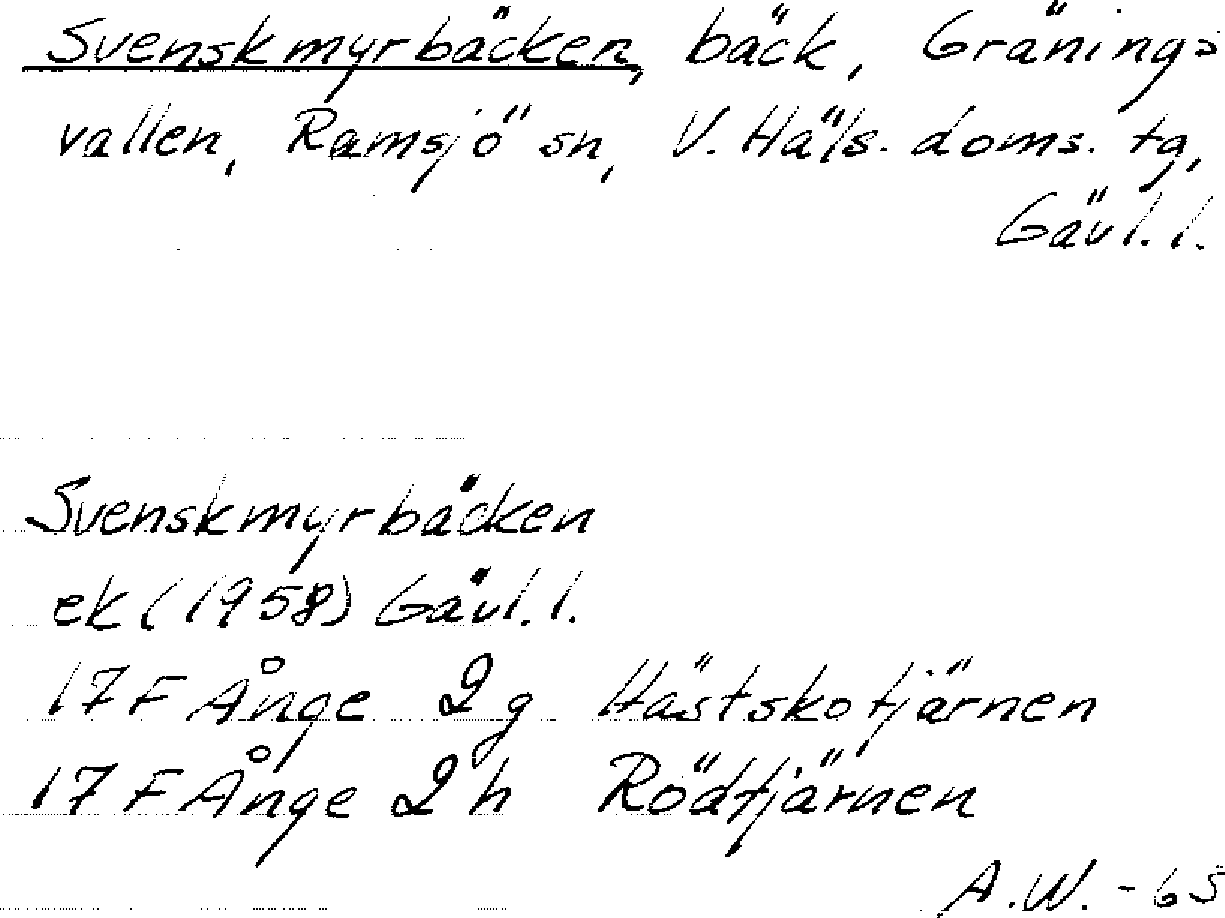 Svenskmyrbäcken, bäck, Gränings
vallen, Ramsjö sn, V. Häls. doms. tg,
Gävl. l.
Svenskmyrbäcken
ek (1958) Gävl. l.
17 F Ånge 2 g Hästskotjärnen
17 F Ånge 2 h Rödtjärnen
A.W. - 65